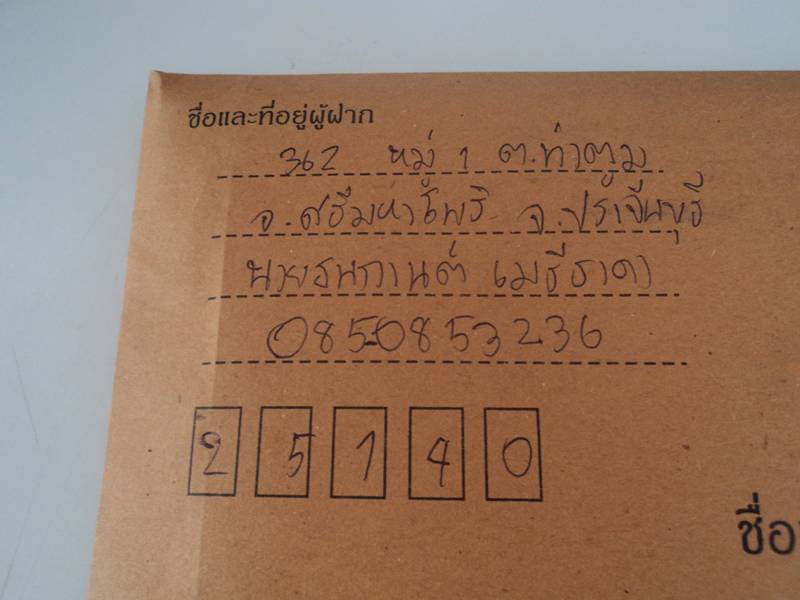 ชื่อและที่อยู่ผู้ฝาก
362 หมู่ 1 ต.ท่าตูม
จ.ศรีมหาโพธิ จ.ปราจีนบุรี
นายธนกานต์ เมธีธาดา
0850853236
25140
ชื่อ